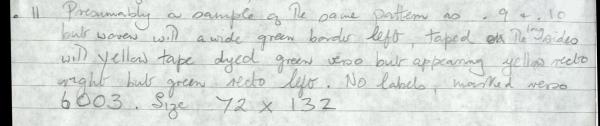 . 11 Presumably a sample of the same pattern as . 9 & . 10
but woven with a wide green border left, taped on the long sides
with yellow tape dyed green verso but appearing yellow recto
right but green recto left. No labels, marked verso
6003. Size 72 x 132